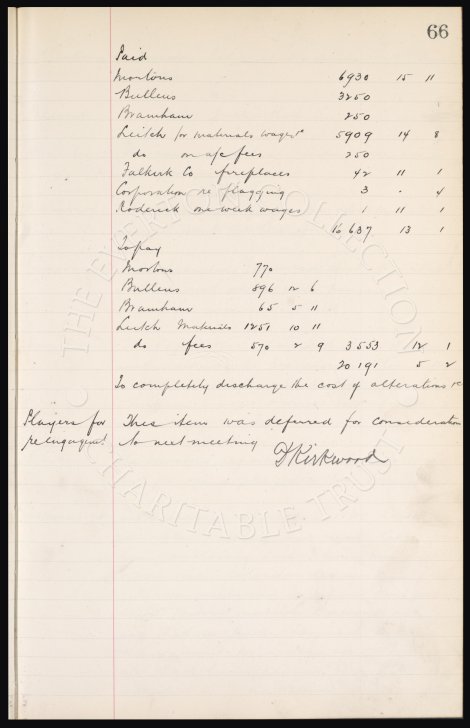 66
Paid
Mortons 6930 15 11
Bullens 3250
Bramham 250
Leitch for materials wages &c 5909 14 8
do on a/c fees 250
Falkirk Co fireplaces 42 11 1
Corporation re flagging 3 . 4
Roderick one week wages 1 11 1
16 637 13 1
To pay
Mortons 770
Bullens 896 12 6
Bramham 65 5 11
Leitch Materials 1251 10 11
do fees 570 2 9 3553 12 1
20 191 5 2
To completely discharge the cost of alterations &c
Players for This item was deferred for consideration
re engagemt. to next meeting
D Kirkwood
THE EVERTON COLLECTION CHARITABLE TRUST